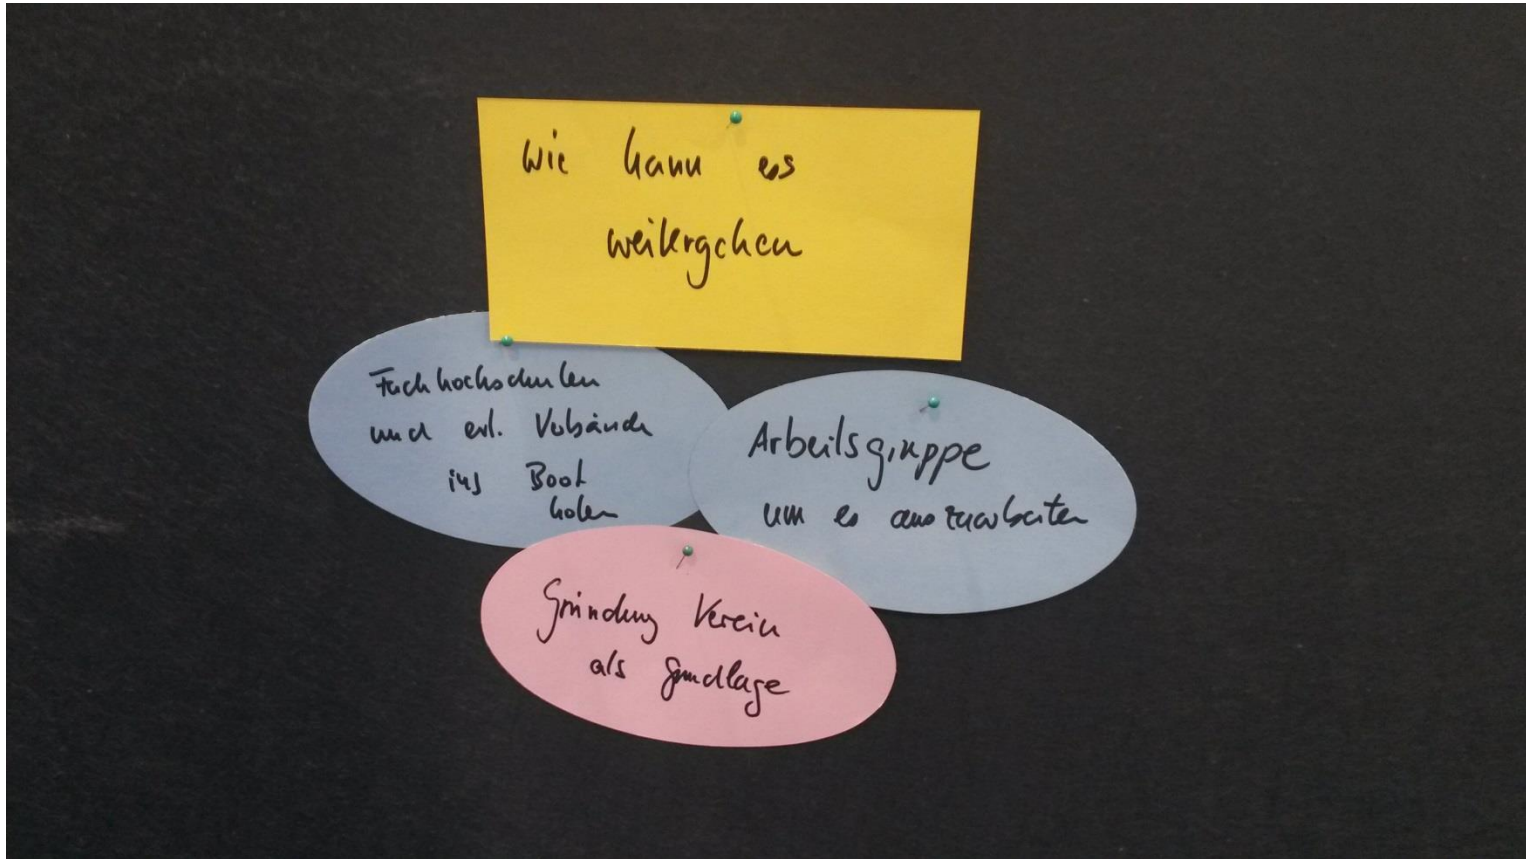 Wie kann es
weitergehen
Fachhochschulen
und evl. Verbände
ins Boot
holen
Arbeitsgruppe
um es auszuarbeiten
Gründung Verein
als Grundlage